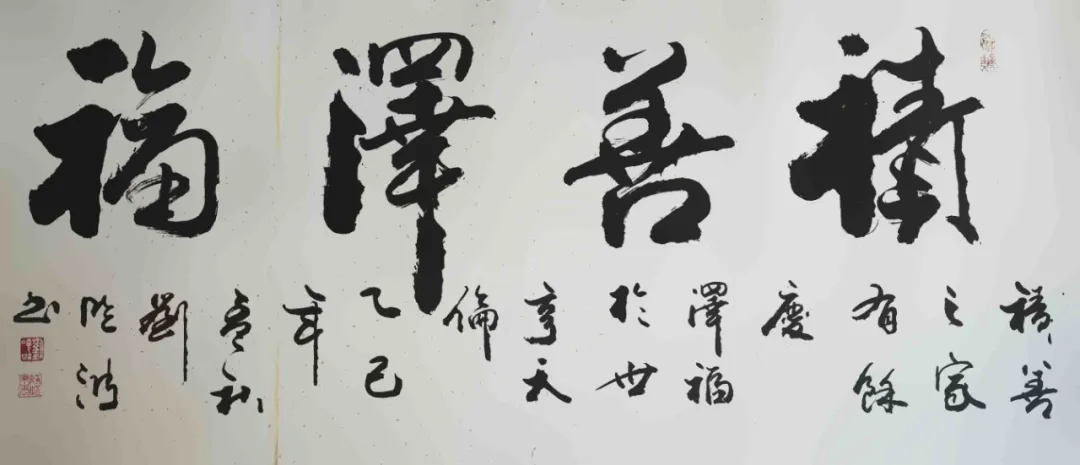 積善澤福
積善
之家
有餘
慶
澤福
於世
享天
倫
乙巳
年
秋
劉
書